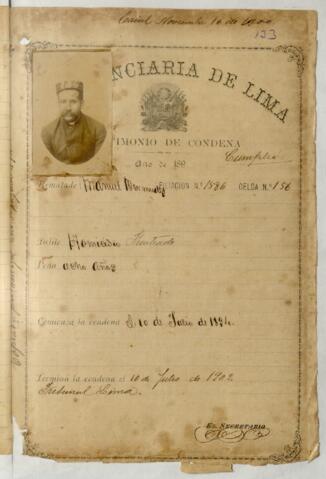 Noviembre 10 de 1900
123
NCIARIA DE LIMA
IMONIO DE CONDENA
Año de 189
Cumplió
Rematado Manuel FILIACION N.º 1586 CELDA N.º 156
Delito Homicidio frustrado
Pena ocho años
Comienza la condena el 10 de Julio de 1894.
Termina la condena el 10 de Julio de 1902
Tribunal Lima.
EL SECRETARIO